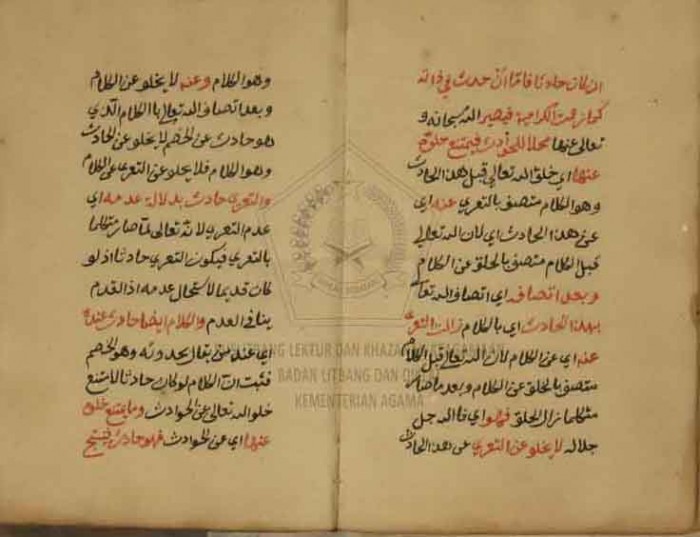 ان كان حادثا فاما ان حدث في ذاته
كما زعمت الكرامية فيصير الله سبحانه و
تعالى عنها محلا للحوادث فيمتنع خلوه
عنها اي خلو الله تعالى قبل هذا الحادث
وهو الكلام متصف بالتعري عنه اي
عن هذا الحادث اي لان الله تعالى
قبل الكلام متصف بالخلو عن الكلام
وبعد اتصافه اي اتصاف الله تعا
بهذا الحادث اي بالكلام زال التعري
عنه اي عن الكلام لان الله تعالى قبل الكلام
متصف بالخلو عن الكلام وبعد ما صار
متكلما زال الخلو فهو اي فالله جل
جلاله لا يخلو عن التعري عن هذا الحادث
وهو الكلام وعنه لا يخلو عن الكلام
وبعد اتصاف الله تعالى باالكلام الذي
هو حادث عن الخصم لا يخلو عن الحادث
وهو الكلام فلا يخلو عن التعري عن الكلام
والتعري حادث بدلالة عدمه اي
عدم التعري لانه تعالى لما صار متكلما
بالتعري فيكون التعري حادثا اذ لو
كان قديما لاستحال عدمه اذ القدم
ينافي العدم والكلام ايضا حادث عنده
اي عند من يقال بحدوثه وهو الخصم
فثبت ان الكلام لو كان حادثا لامتنع
خلو الله تعالى عن الحوادث وما يمتنع خلوه
عنها اي عن الحوادث فهو حادث فينتج
PUSLITBANG LEKTUR DAN KHAZANAH KEAGAMAAN
BADAN LITBANG DAN DIKLAT
KEMENTERIAN AGAMA